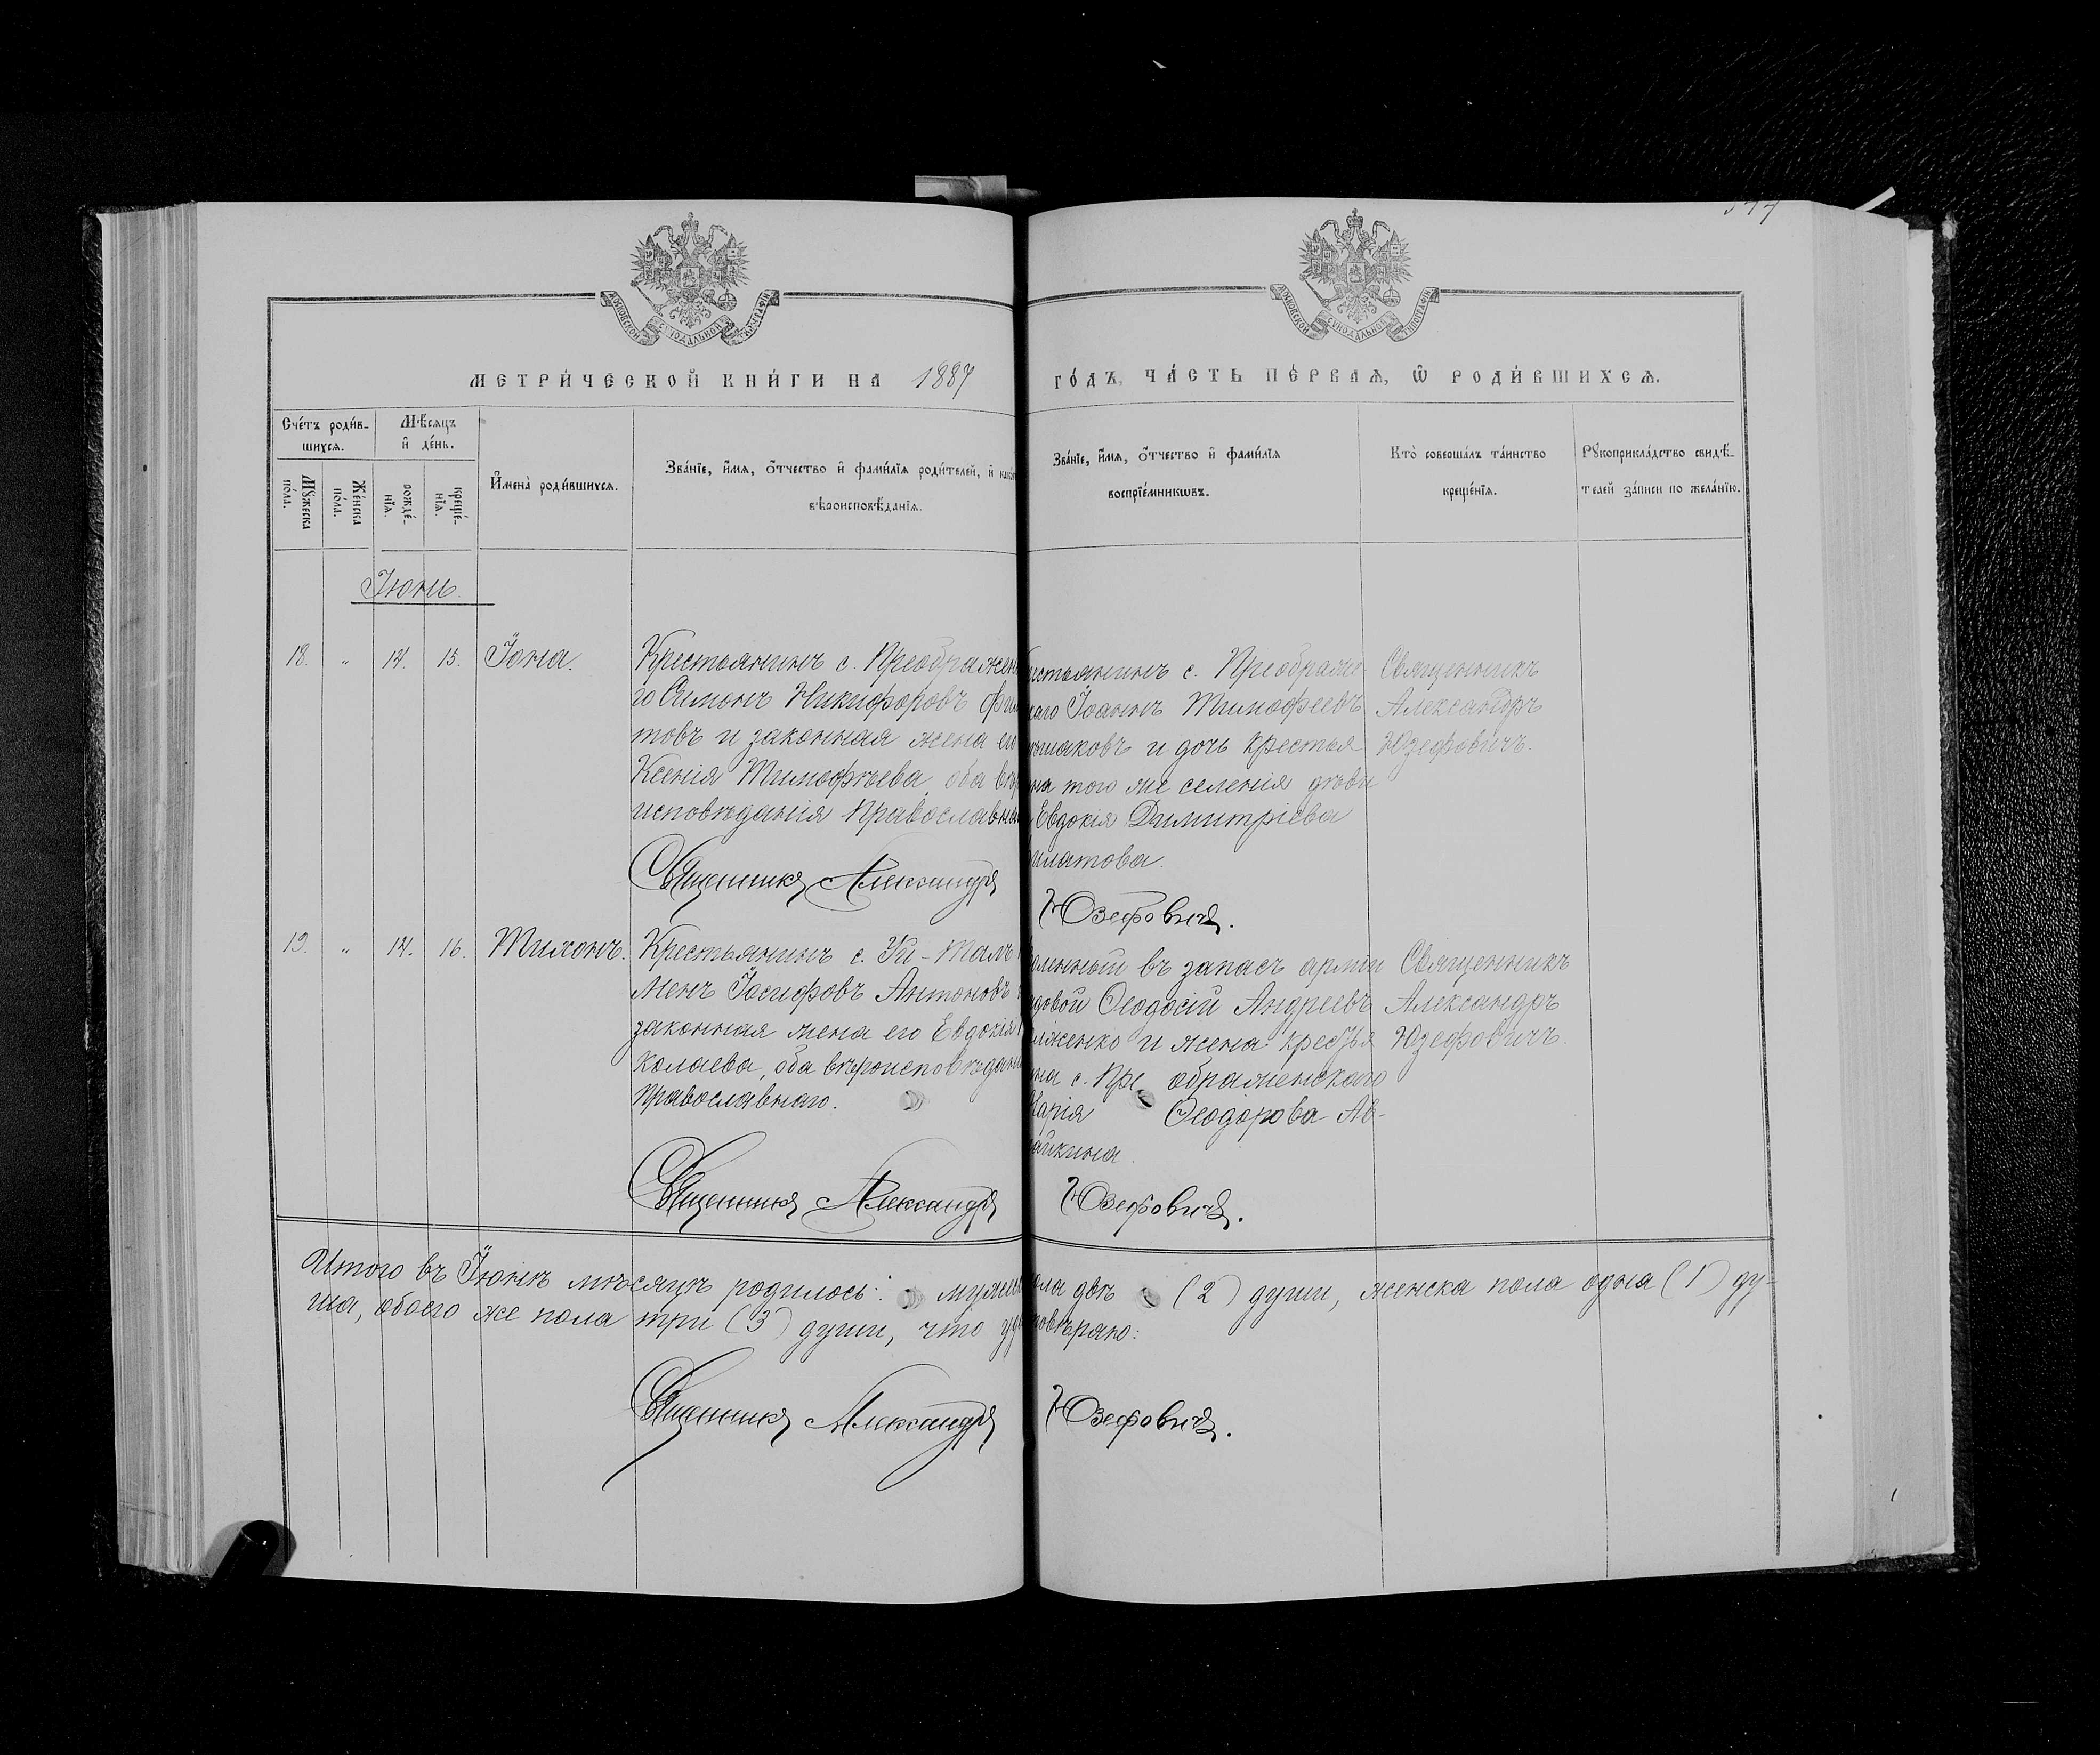 МОСКОВСКОЙ СѴНОДАЛЬНОЙ ТИПОГРАФІИ
МОСКОВСКОЙ СѴНОДАЛЬНОЙ ТИПОГРАФІИ
МЕТРИ́ЧЕСКОЙ КНИ́ГИ НА 1887 ГО́ДЪ, ЧА́СТЬ ПЕ́РВАѦ, Ѽ РОДИ́ВШИХСѦ.
Сче́тъ роди́в-
шихсѧ.
Мѣ́сѧцъ
и҆ де́нь.
Мꙋ́жеска
по́ла.
Же́нска
по́ла.
рожде́-
нїѧ.
креще́-
нїѧ.
И҆мена̀ роди́вшихсѧ.
Зва́нїе, и҆́мѧ, ѻ҆́тчество и҆ фами́лїѧ роди́телей, и҆
вѣроисповѣ́данїѧ.
Зва́нїе, и҆́мѧ, ѻ҆́тчество и҆ фами́лїѧ
воспрїе́мникѡвъ.
Кто̀ соверша́лъ та́инство
креще́нїѧ.
Рꙋкоприкла́дство свидѣ́-
телей за́писи по жела́нїю.
Іюнь.
18. " 14. 15. Іона.
Крестьянинъ с. Преображен
го Симонъ Никифоровъ Фи
товъ и законная жена ег
Ксенія Тимофѣева, оба вѣр
исповѣданія Православна
Священникъ Александръ
естьянинъ с. Преображе
каго Іоаннъ Тимофеевъ
ышаковъ и дочь крестья
на того же селенія дѣви
Евдокія Димитріева
илатова.
Юзефовичъ.
Священникъ
Александръ
Юзефовичъ.
19. " 14. 16. Тихонъ.
Крестьянинъ с. Уи-Талъ
менъ Іосифовъ Антоновъ
законная жена его Евдокія
колаева, оба вѣроисповѣдан
Православнаго.
Священникъ Александръ
оленный въ запасъ арміи
довой Ѳеодосій Андреевъ
лженко и жена крестья
на с. Преображенскаго
Марія Ѳеодорова Ав-
айкина.
Юзефовичъ.
Священникъ
Александръ
Юзефовичъ.
Итого въ Іюнѣ мѣсяцѣ родилось: мужск пола двѣ (2) души, женска пола одна (1) ду-
ша, обоего же пола три (3) души, что удостовѣряю:
Священникъ Александръ Юзефовичъ.